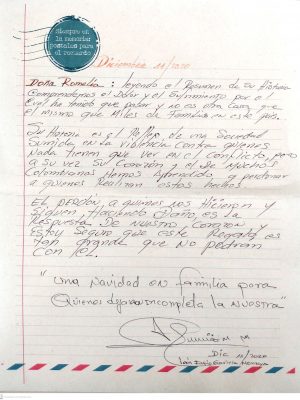 Siempre en
la memoria:
postales para
el recuerdo
Diciembre 11/2020
Doña Romelia: leyendo el Resumen de su Historia
Comprendemos el Dolor y el Sufrimiento por el
Cual ha tenido que pasar y no es otra cosa que
el mismo que Miles de Familias en este país.
Su Historia es el de una Sociedad
Sumida en la Violencia contra quienes
Nada Tienen que ver en el Conflicto, pero
a su vez su Corazón y el de Muchos
Colombianos Hemos Aprendido a perdonar
a quienes Realizan estos hechos
EL PERDÓN, a quienes nos Hicieron y
Siguen Haciendo Daño, es la
Respuesta de Nuestro Corazón y
Estoy Seguro que este Regalo es
tan Grande que No podrán
Con él.
"Una Navidad en familia para
Quienes dejaron incompleta la Nuestra"
Dic 11/2020